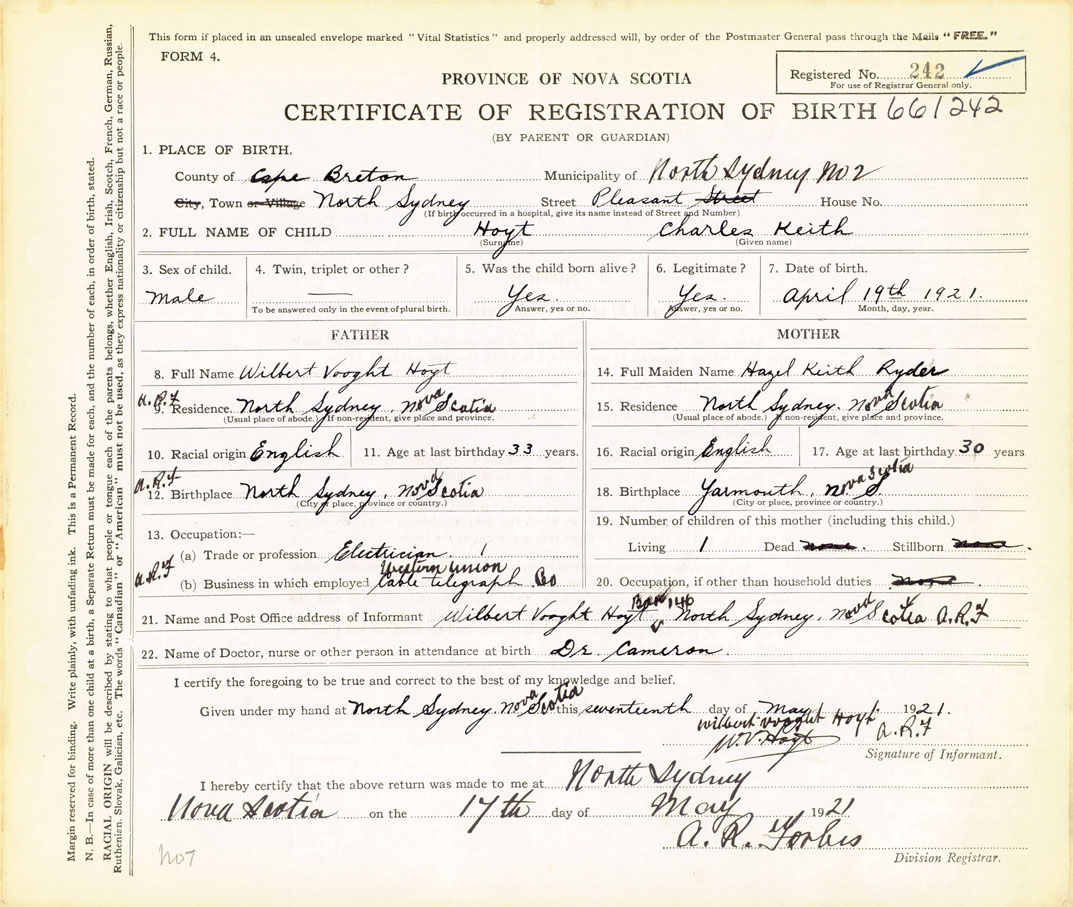 This form if placed in an unsealed envelope marked "Vital Statistics" and properly addressed will, by order of the Postmaster General pass through the Mails "FREE."
FORM 4.
PROVINCE OF NOVA SCOTIA
Registered No. 242
For use of Registrar General only.
CERTIFICATE OF REGISTRATION OF BIRTH 661242
(BY PARENT OR GUARDIAN)
1. PLACE OF BIRTH.
County of Cape Breton Municipality of North Sydney No 2
City, Town or Village North Sydney Street Pleasant Street House No.
(If birth occurred in a hospital, give its name instead of Street and Number)
2. FULL NAME OF CHILD Hoyt Charles Keith
(Surname) (Given name)
3. Sex of child. 4. Twin, triplet or other? 5. Was the child born alive? 6. Legitimate? 7. Date of birth.
Male — Yes. Yes. April 19th 1921.
To be answered only in the event of plural birth. Answer, yes or no. Answer, yes or no. Month, day, year.
FATHER
8. Full Name Wilbert Vooght Hoyt
A.R.F
9. Residence. North Sydney, Nova Scotia
(Usual place of abode.) If non-resident, give place and province.
10. Racial origin English 11. Age at last birthday 33 years.
A.R.F
12. Birthplace North Sydney, Nova Scotia
(City or place, province or country.)
13. Occupation:—
(a) Trade or profession Electrician.
Western Union
A.R.F
(b) Business in which employed Cable telegraph Co
MOTHER
14. Full Maiden Name Hazel Keith Ryder
15. Residence North Sydney. Nova Scotia
(Usual place of abode.) If non-resident, give place and province.
16. Racial origin English 17. Age at last birthday 30 years
18. Birthplace Yarmouth, Nova Scotia N. S.
(City or place, province or country.)
19. Number of children of this mother (including this child.)
Living 1 Dead none. Stillborn none.
20. Occupation, if other than household duties none.
Box 146
21. Name and Post Office address of Informant Wilbert Vooght Hoyt, North Sydney, Nova Scotia A.R.F
22. Name of Doctor, nurse or other person in attendance at birth Dr. Cameron.
I certify the foregoing to be true and correct to the best of my knowledge and belief.
Given under my hand at North Sydney. Nova Scotia this seventeenth day of May 1921.
Wilbert Vooght Hoyt A.R.F
W.V. Hoyt
Signature of Informant.
I hereby certify that the above return was made to me at North Sydney
Nova Scotia on the 17th day of May 1921
A. R. Forbes
Division Registrar.
No 7
Margin reserved for binding. Write plainly, with unfading ink. This is a Permanent Record.
N. B.—In case of more than one child at a birth, a Separate Return must be made for each, and the number of each, in order of birth, stated.
RACIAL ORIGIN will be described by stating to what people or tongue each of the parents belongs, whether English, Irish, Scotch, French, German, Russian,
Ruthenian, Slovak, Galician, etc. The words "Canadian" or "American" must not be used, as they express nationality or citizenship but not a race or people.